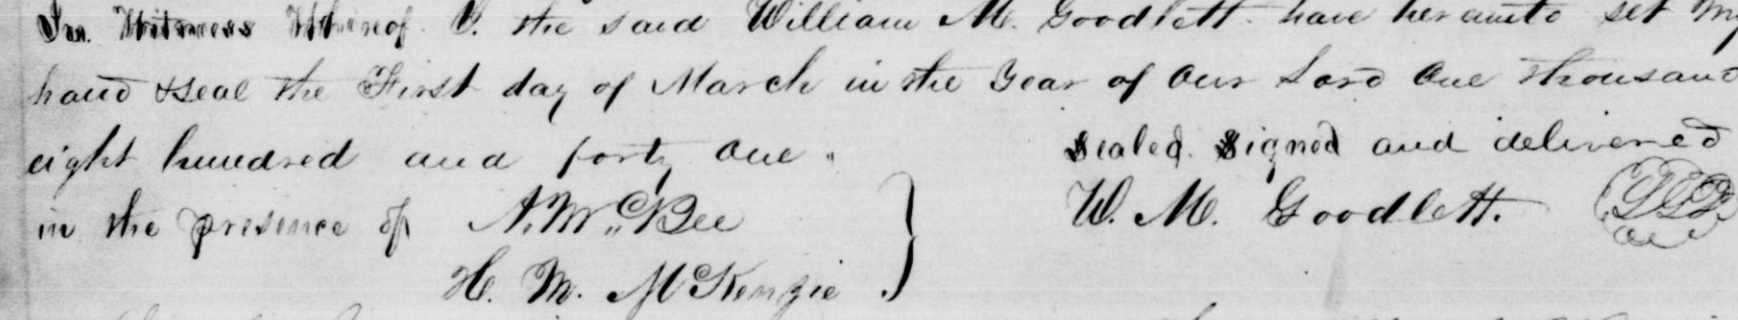 In Witness Whereof I. the said William M. Goodlett have hereunto set my
hand & seal the First day of March in the Year of Our Lord One thousand
eight hundred and forty One. Sealed. Signed and delivered
in the presence of A. McBee W. M. Goodlett.
H. M. McKenzie